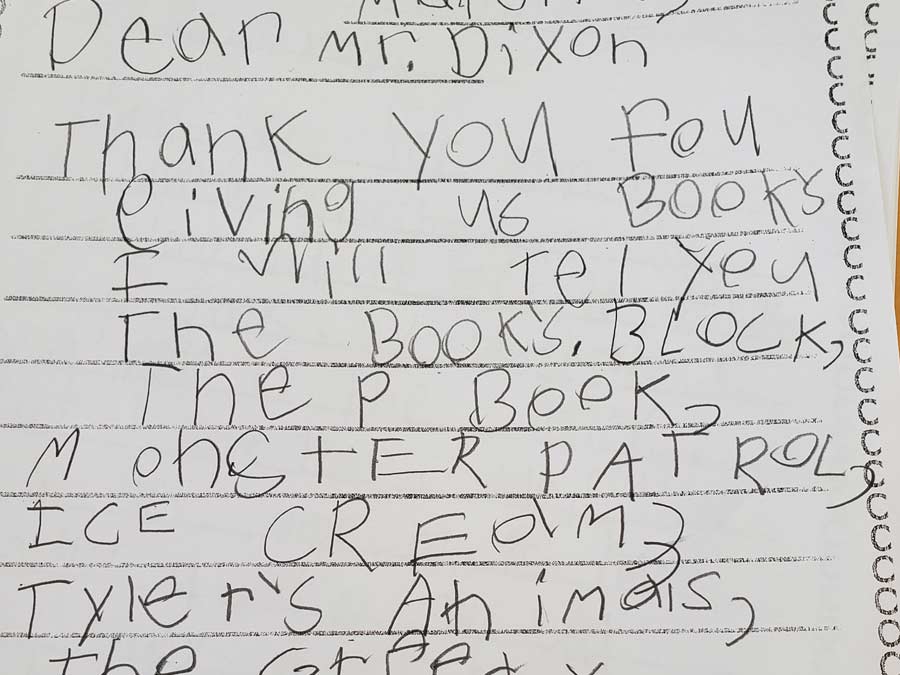 Dear Mr. Dixon
Thank you fou
Giving us BOOK's
I Will tel you
The BOOK's. BLOCK,
The P Book,
MonsTER PATROL,
ICE CREam,
Tyler's Animals,
the Greedy